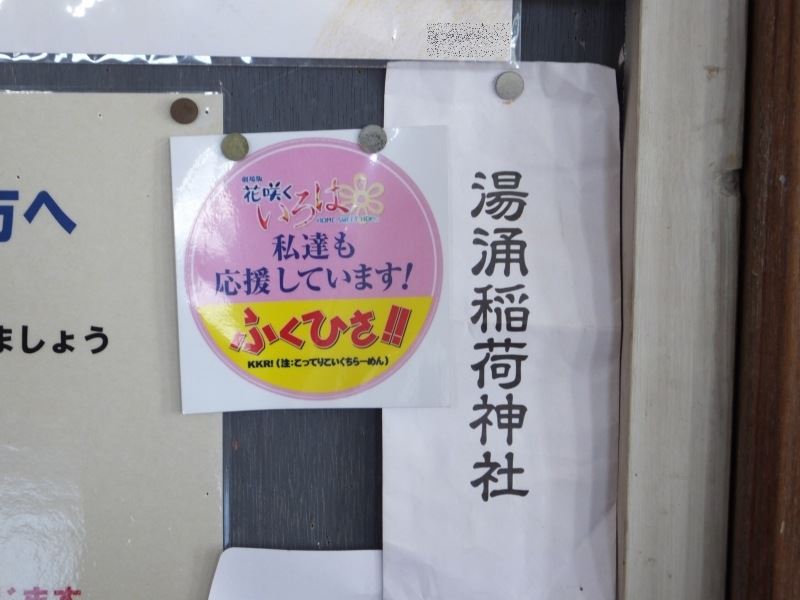 方へ
ましょう
劇場版
花咲く
いろは
HOME SWEET HOME
私達も
応援しています!
ふくひさ!!
KKR!(注:こってりこいくちらーめん)
湯涌稲荷神社
じます